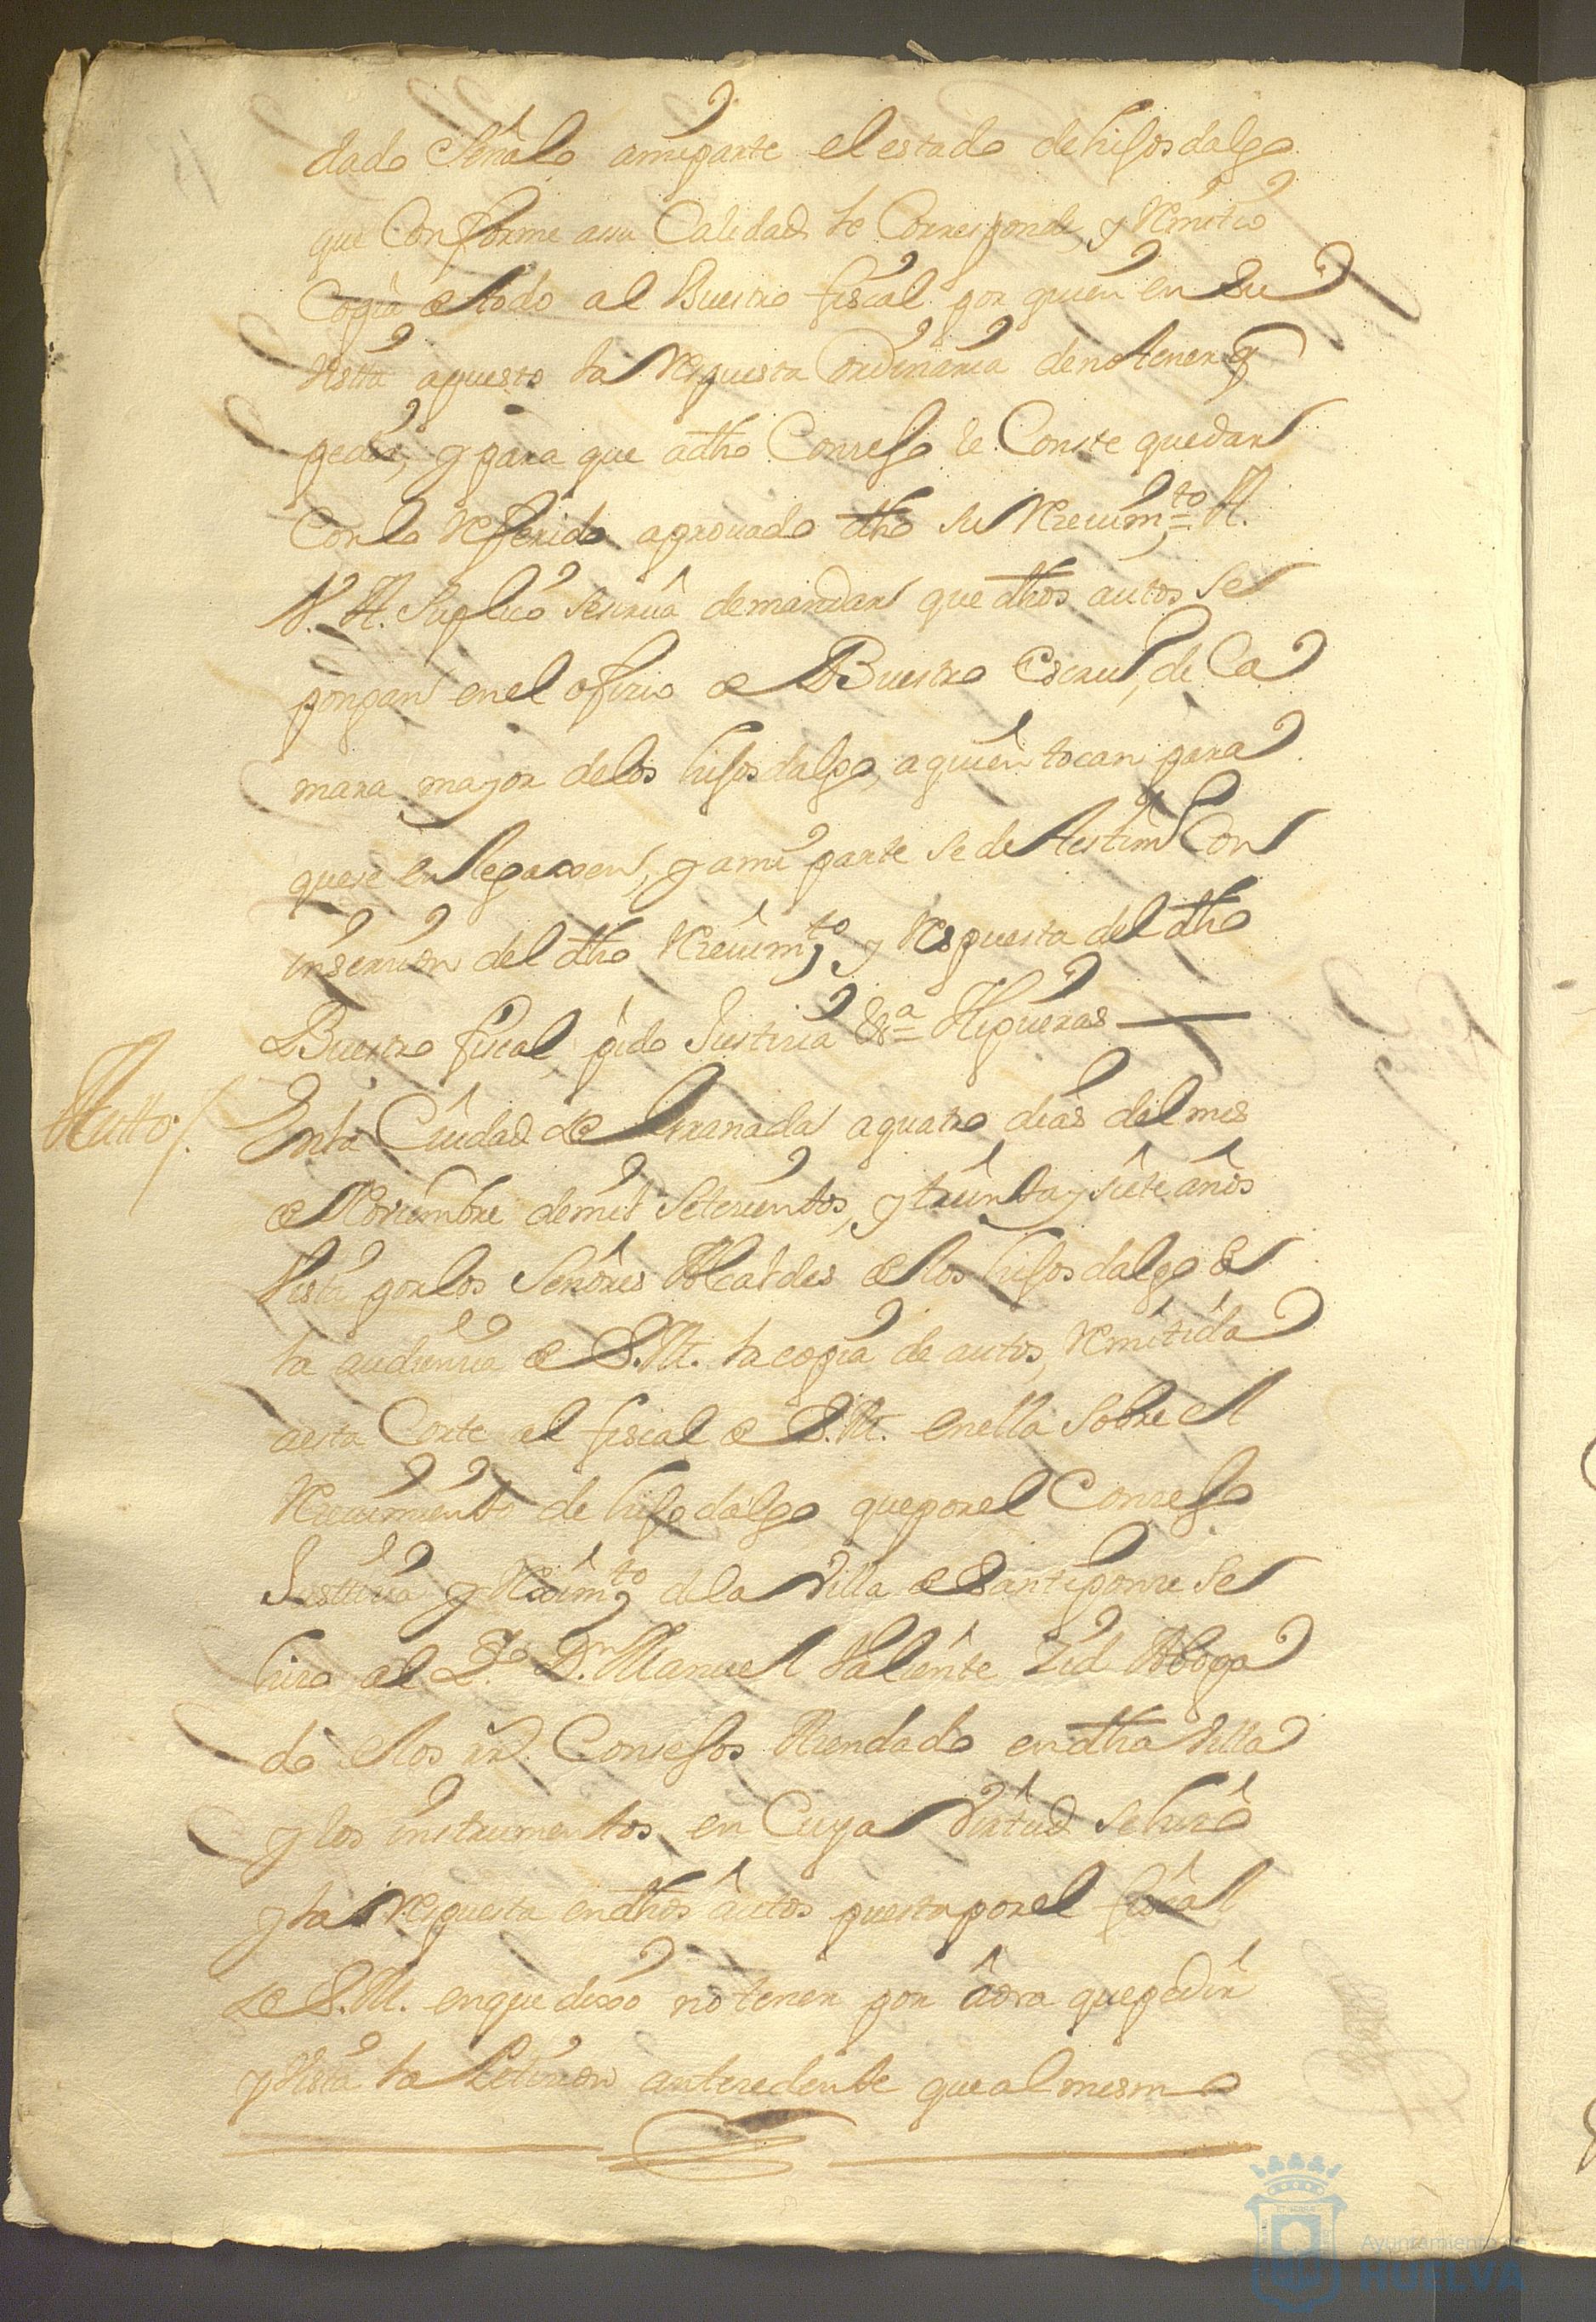 dado Señalo amiparte el estado dehijosdalgo
que Conforme assu Calidad le Corresponde, y Remitio
Copia de todo al Buestro fiscal por quien en su
Vista apuesto la Respuesta Ordinaria denotener q
pedir, y para que adho Consejo le Conste quedar
Con lo Referido aprouado dho su Reciuim.to A.
V. A. Suplico se sirua demandar que dhos autos se
pongan en el ofizio de Buestro Escriu, de Ca
mara mayor delos hijosdalgo, aquien tocan para
quese en legaxen, y ami parte se de testim Con
inserzion del dho Reciuim.to, y Respuesta del dho
Buestro fiscal, pido Justizia &.a Higueras —
Autto /.
Enla Ciudad de Granada aquatro dias del mes
de Noviembre demil Setezientos, y treinta y siete años
Vista por los Señores Alcaldes de los hijosdalgo de
la audienzia de S. M. la copia de autos, Remitida
aesta Corte al fiscal de S. M. en ella sobre el
Reciuimiento de hijodalgo que por el Consejo
Justizia y Rexim.to dela Villa de Santiponze se
hizo al L.do D.n Manuel Valiente Zid Aboga
do de los R. Consejos Hazendado endha Villa
y los instrumentos en Cuya Virtud se hizo
y la Respuesta endhos autos puesta por el fiscal
de S. M. enque dixo no tener por aora que pedir
y Vista la Petizion antezedente que al mismo
Ayuntamiento de
HUELVA